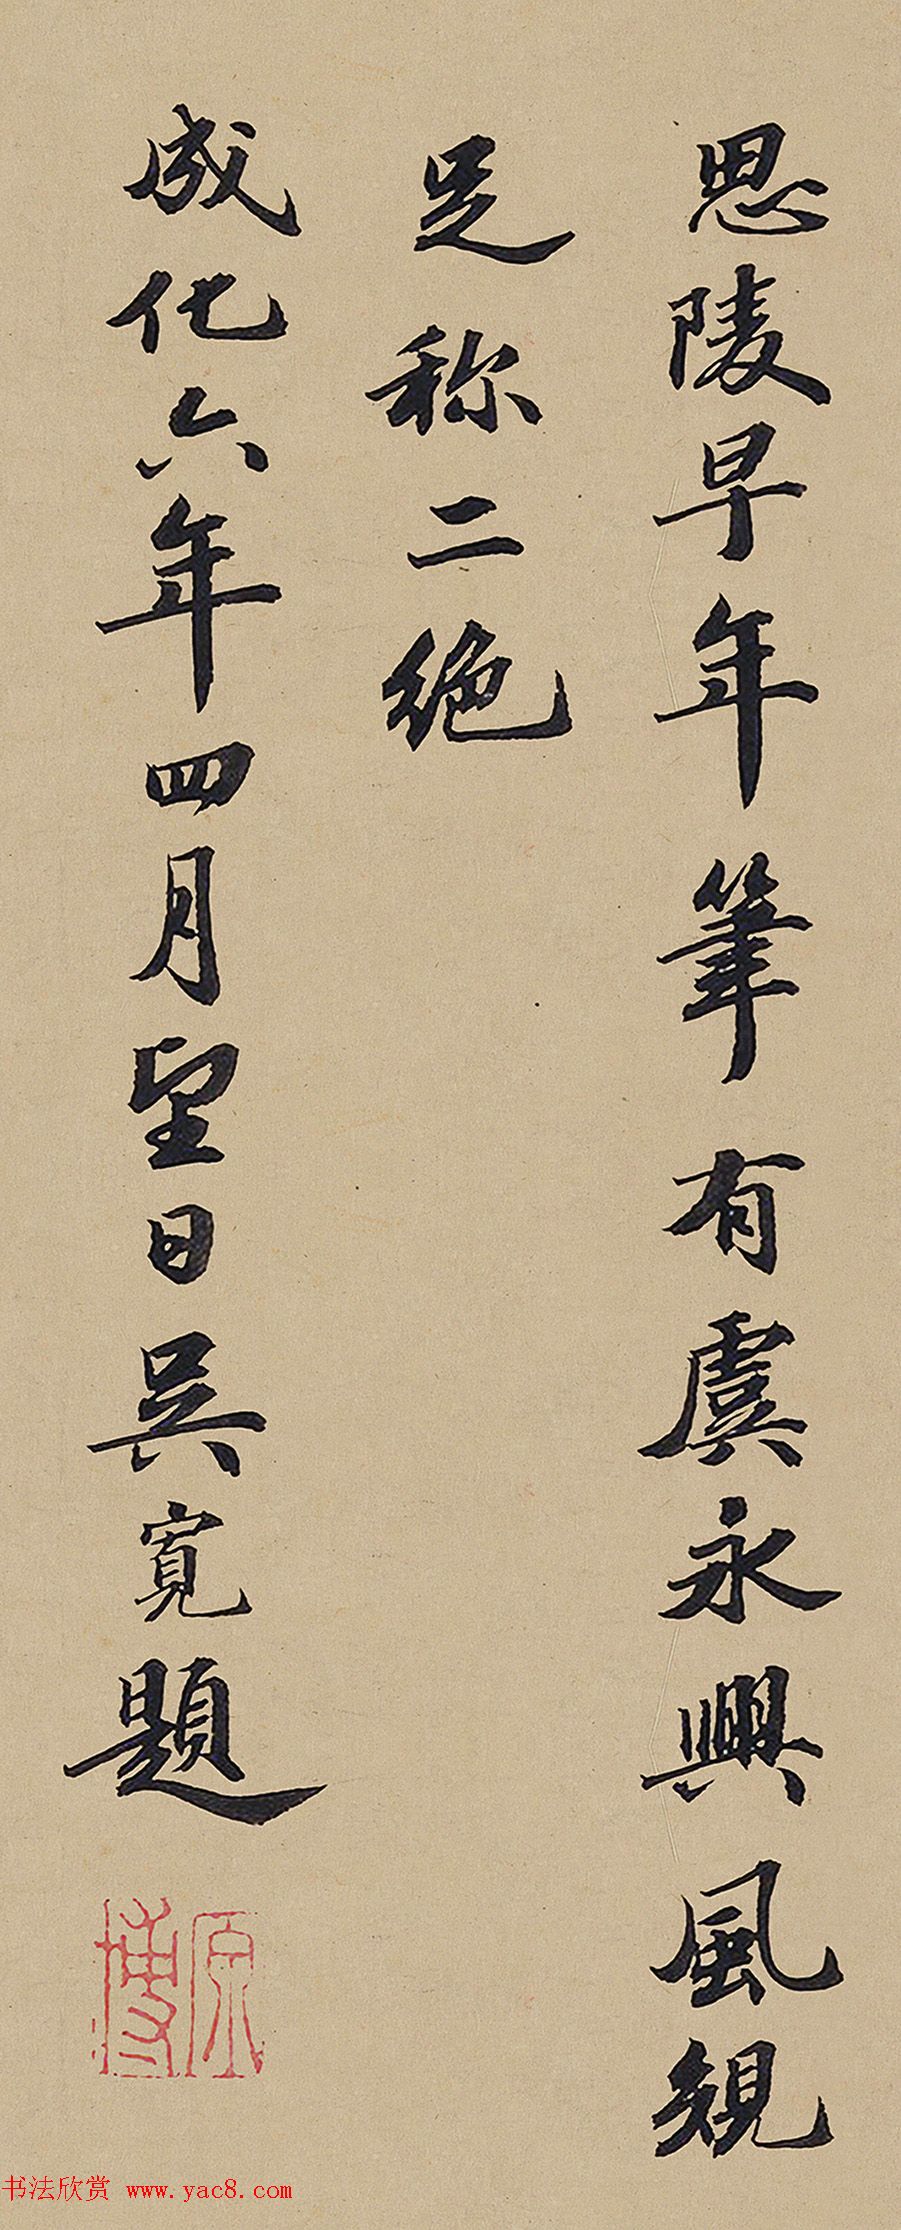 思陵早年筆有虞永興風規
足称二絶
成化六年四月望日吳寬題
原博
书法欣赏 www.yac8.com